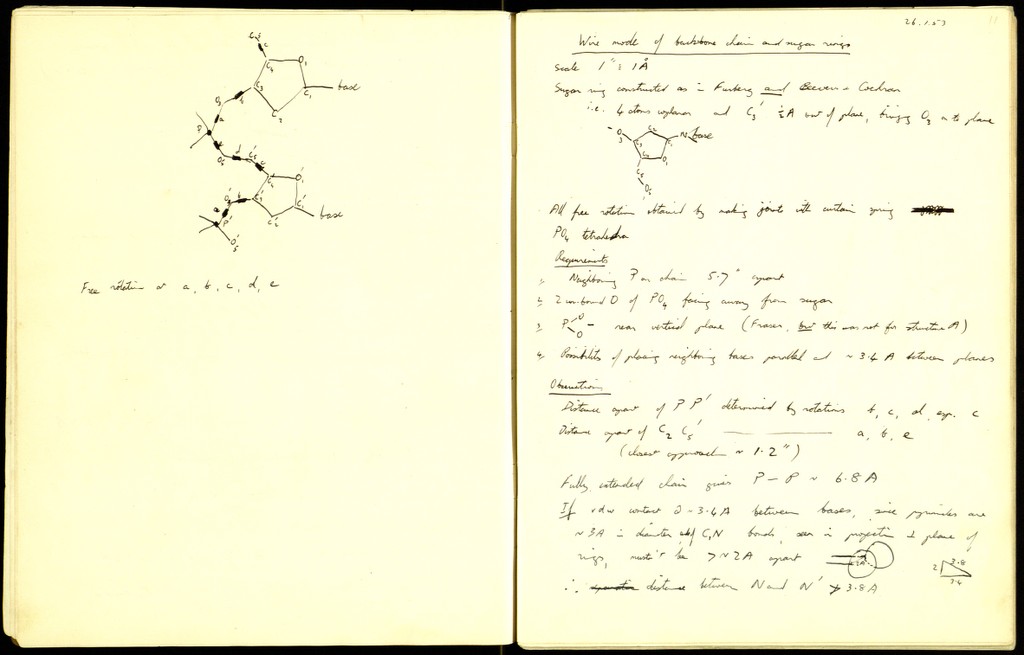 C5
C4
O1
C3
C1
base
C2
O3
P
O5
C5'
C4'
O1'
C3'
C1'
C2'
base
O3'
P'
O5'
Free rotation at a, b, c, d, e
26.1.53
11
Wire model of backbone chain and sugar rings
Scale 1" : 1Å
Sugar ring constructed as in Furberg and Beevers + Cochran
i.e. 4 atoms coplanar and C3' ½A out of plane, bringing O3 in to plane
O3 C2 N base
C3 C1
C4 O1
C5
O5
All free rotation obtained by making joints with curtain spring
PO4 tetrahedra
Requirements
1, Neighbouring P on chain 5.7" apart
2, 2 unbound O of PO4 facing away from sugar
3, P O O – near vertical plane (Fraser, but this was not for structure A)
4, Possibility of placing neighbouring bases parallel and ~ 3.4 A between planes
Observations
Distance apart of P P' determined by rotations b, c, d, esp. c
Distance apart of C2 C5' ——— a, b, e
(closest approach ~ 1.2")
Fully extended chain gives P – P ~ 6.8 A
If v d w contact 3.4A between bases, since pyrimidines are
~ 3A in diameter C,N bonds, seen in projection ⊥ plane of
rings, mustn't be > ~ 2A apart
2 3.8
3.4
∴ distance between N and N' ≯ 3.8 A